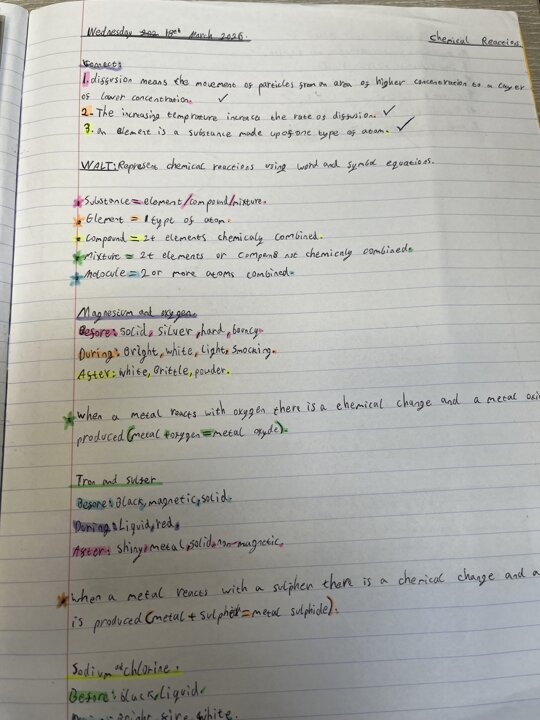 Wednesday 18th March 2026.
Chemical Reaction
Connect:
1. diffusion means the movement of particles from an area of higher concentration to a layer
of lower concentration. ✓
2. The increasing temprature increace the rate of diffusion. ✓
3. an element is a substance made up of one type of atom. ✓
WALT: Represent chemical reactions using word and symbol equations.
* Substance = element/compound/mixture.
* Element = 1 type of atom.
* Compound = 2+ elements chemicaly combined.
* Mixture = 2+ elements or compens not chemicaly combined.
* Molocule = 2 or more atoms combined.
Magnesium and oxygen.
Before: solid, silver, hard, bouncy.
During: Bright, white, light, smocking.
After: white, Brittle, powder.
* When a metal reacts with oxygen there is a chemical change and a metal oxi
produced (metal + oxygen = metal oxyde).
Iron and sulfer
Before: Black, magnetic, solid.
During: Liquid, red.
After: shiny, metal, solid, non-magnetic.
* When a metal reacts with a sulpher there is a chemical change and a
is produced (metal + sulpher = metal sulphide).
Sodium and chlorine.
Before: black, liquid.
During: Bright, fire, white.